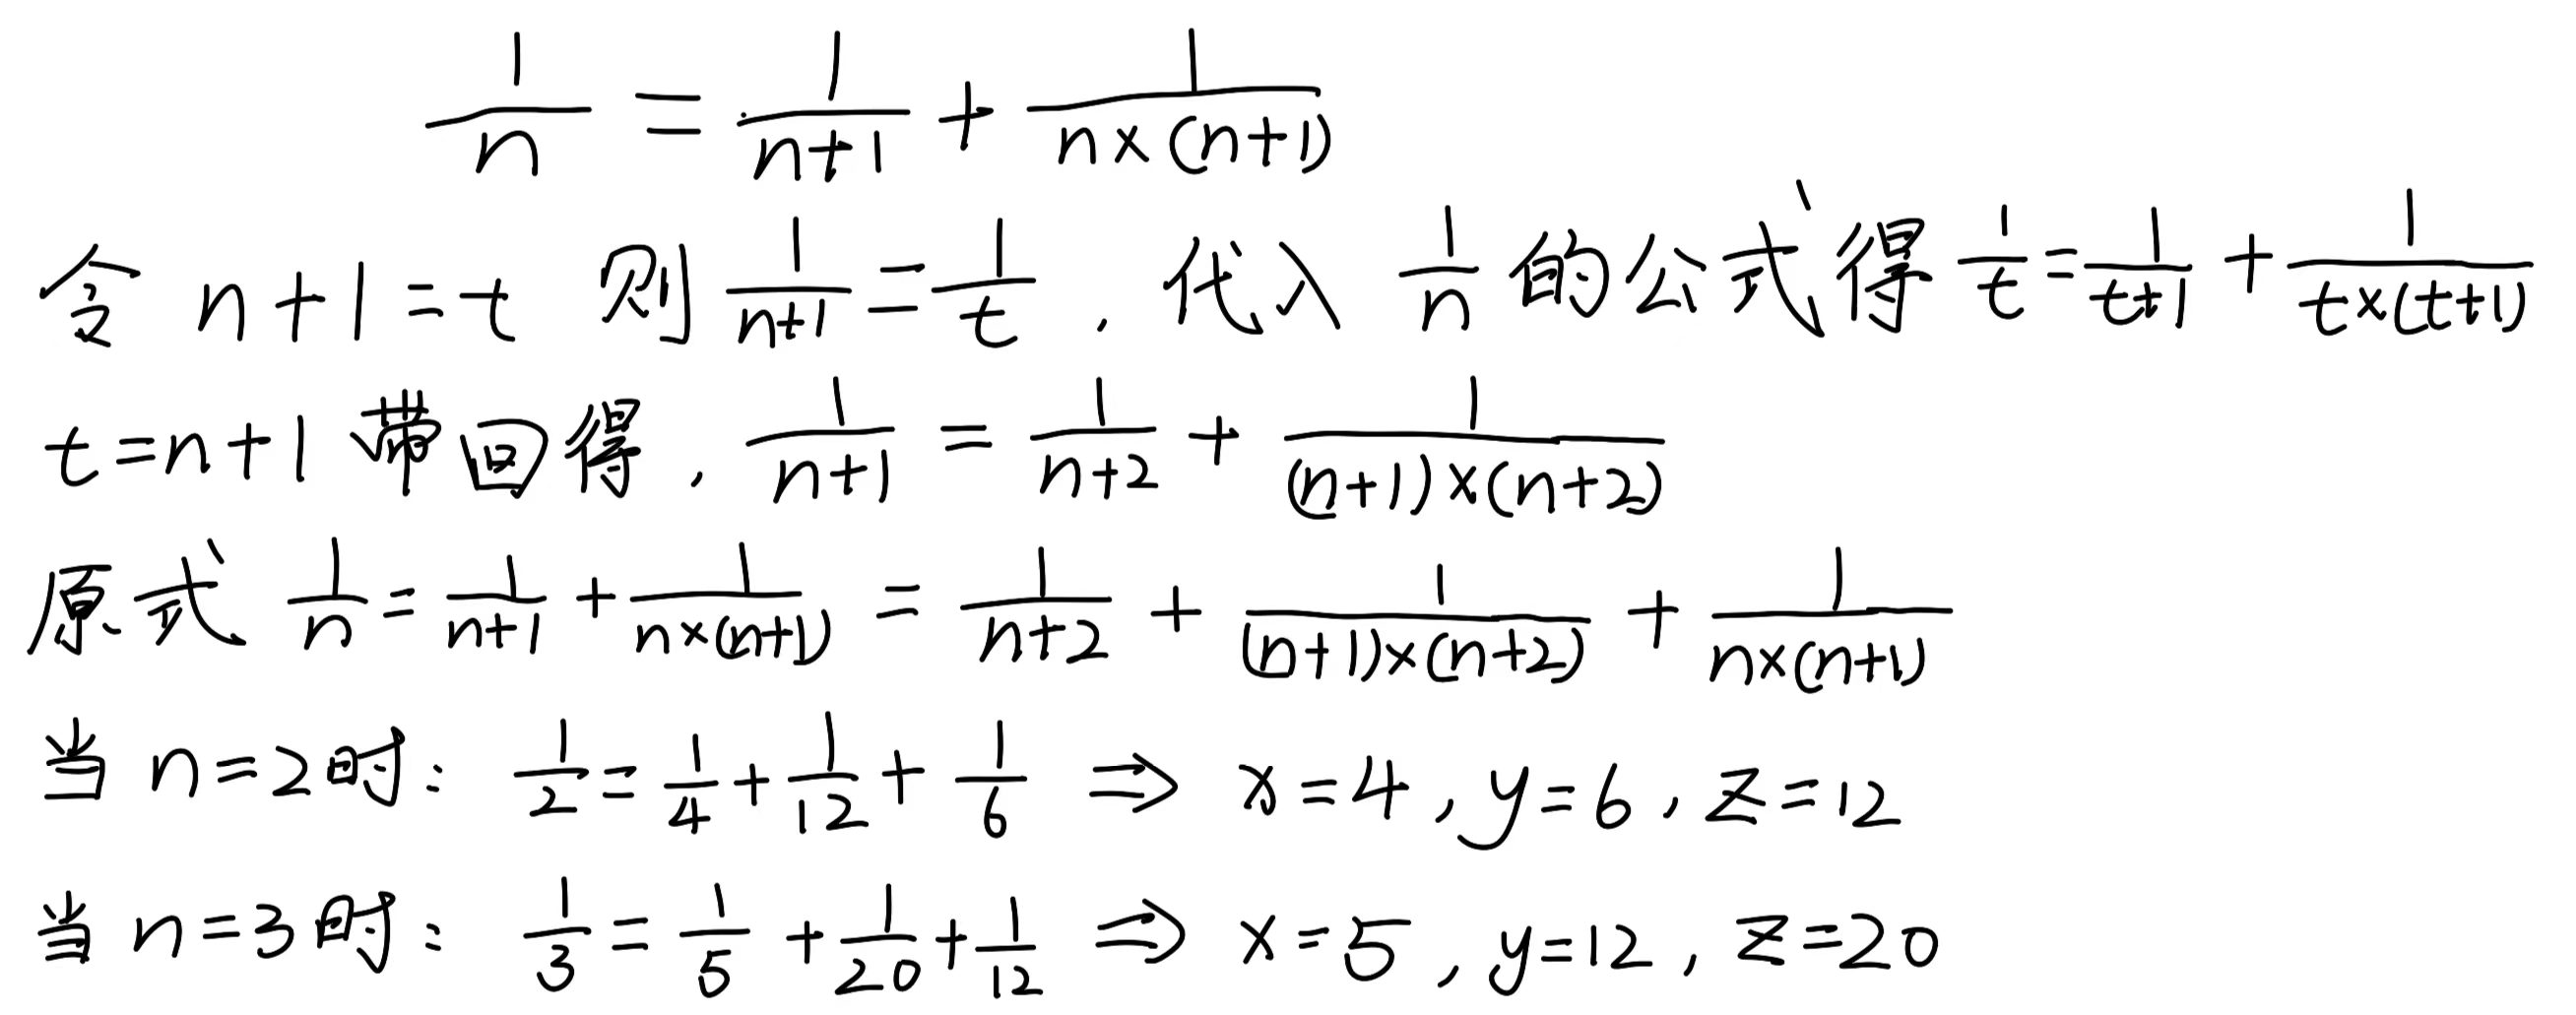 1/n = 1/(n+1) + 1/(n×(n+1))
令 n+1=t 则 1/(n+1) = 1/t , 代入 1/n 的公式得 1/t = 1/(t+1) + 1/(t×(t+1))
t=n+1 带回得 , 1/(n+1) = 1/(n+2) + 1/((n+1)×(n+2))
原式 1/n = 1/(n+1) + 1/(n×(n+1)) = 1/(n+2) + 1/((n+1)×(n+2)) + 1/(n×(n+1))
当 n=2时: 1/2 = 1/4 + 1/12 + 1/6 ⇒ x=4 , y=6 , z=12
当 n=3时: 1/3 = 1/5 + 1/20 + 1/12 ⇒ x=5 , y=12 , z=20